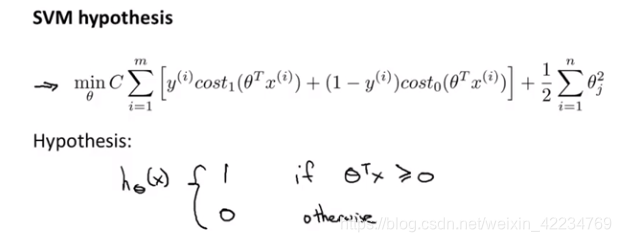 SVM hypothesis
→ min_θ C ∑_{i=1}^{m} [y^{(i)}cost₁(θᵀx^{(i)}) + (1 − y^{(i)})cost₀(θᵀx^{(i)})] + 1/2 ∑_{i=1}^{n} θ_j²
Hypothesis:
h_θ(x) { 1 if θᵀx ⩾ 0
0 otherwise
https://blog.csdn.net/weixin_42234769